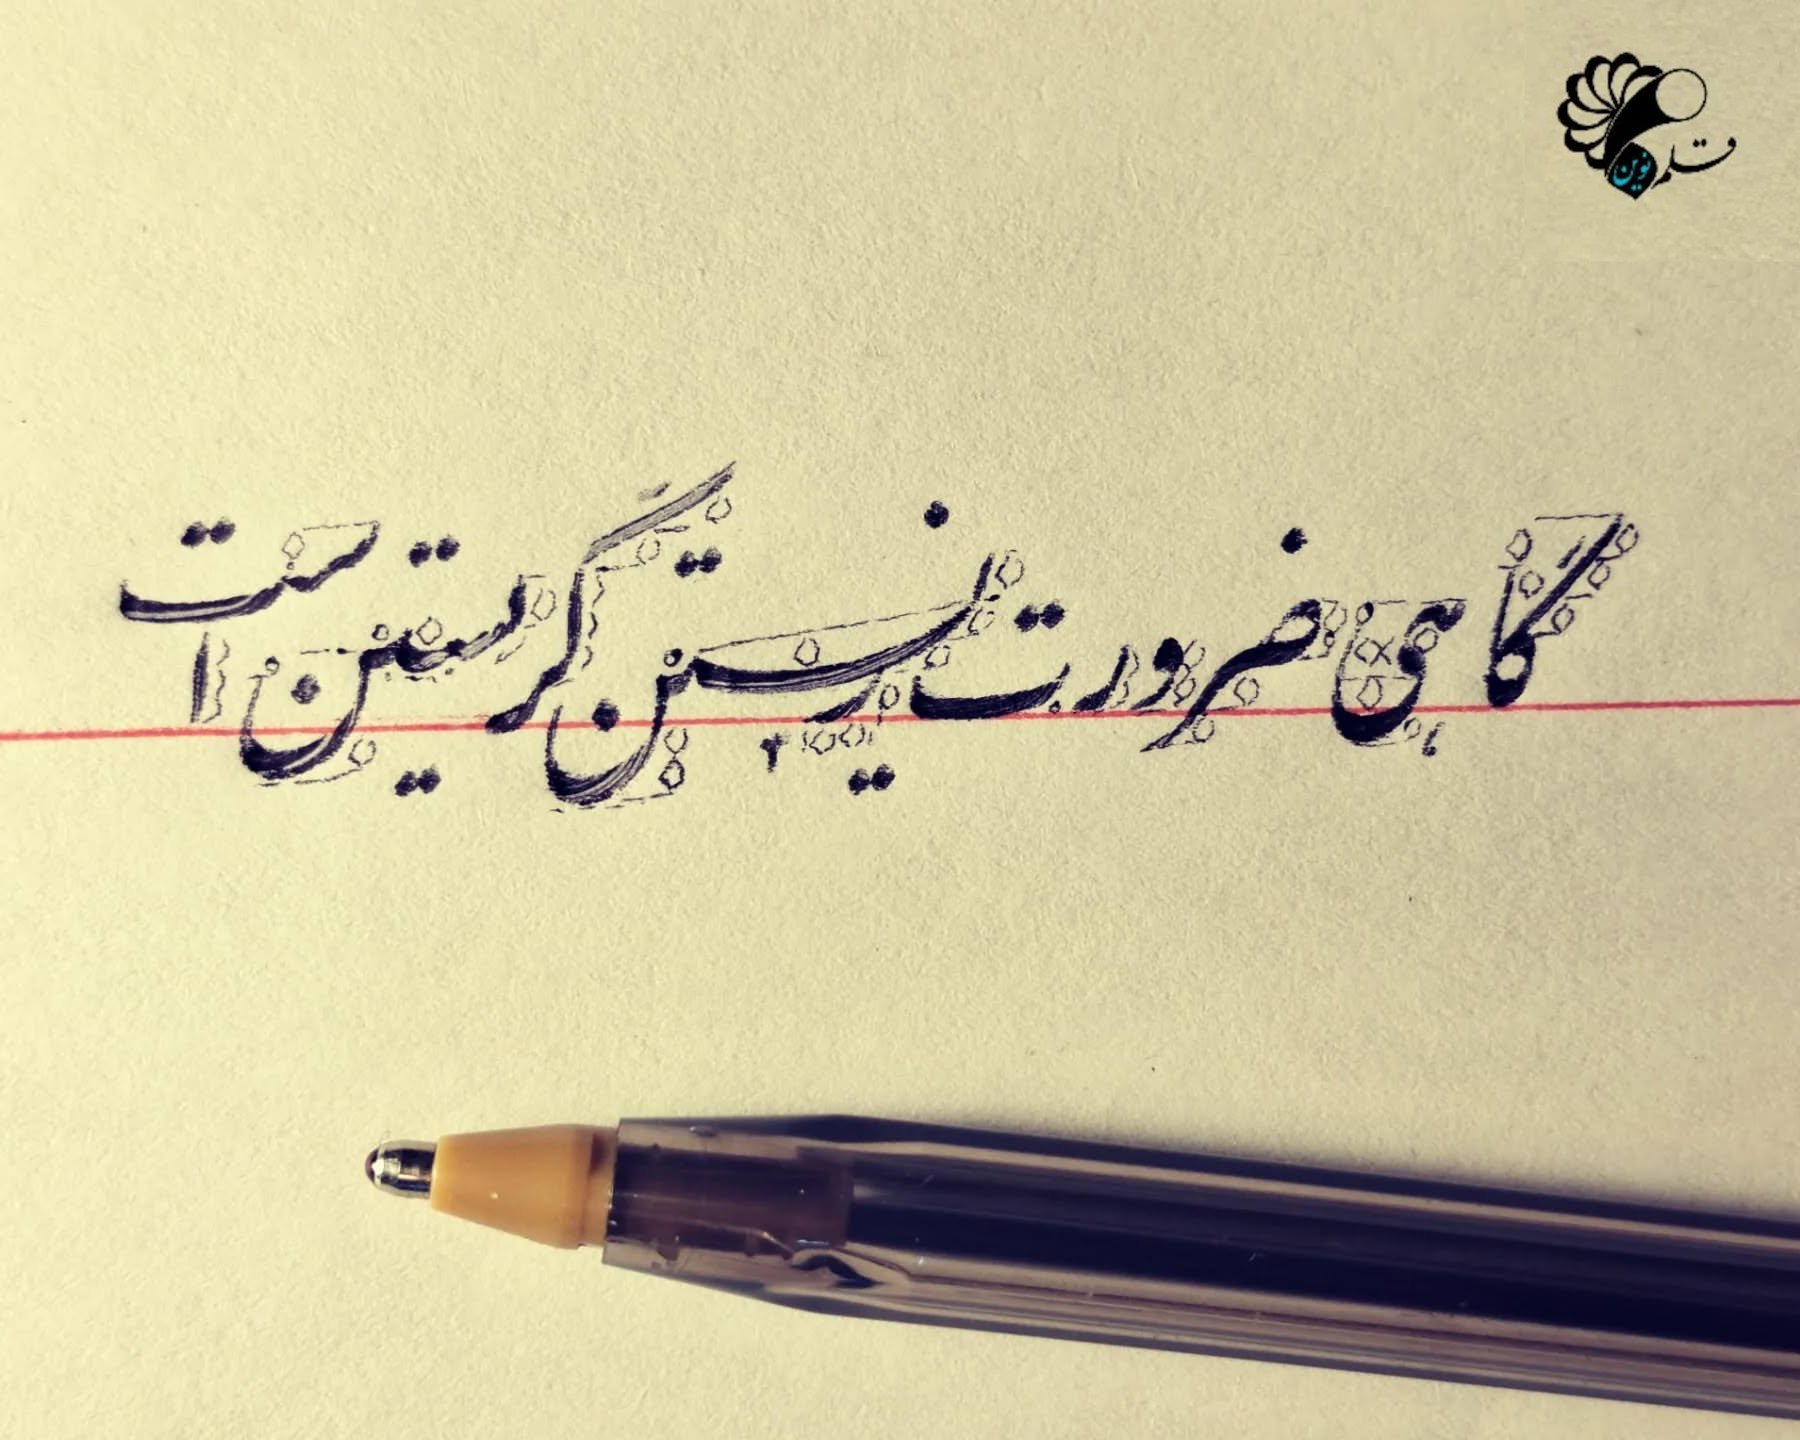 قلم نوین
گاهی ضرورت زیستن گریستن است